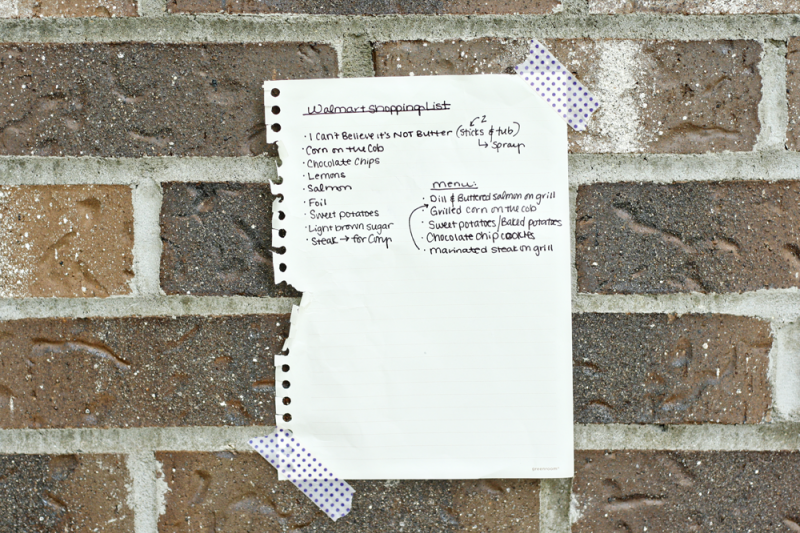 Walmart Shopping List
· I Can't Believe it's NOT Butter (Sticks & tub)
2
↳ Spray
· Corn on the Cob
· Chocolate Chips
· Lemons
· Salmon
· Foil
· Sweet potatoes
· Light brown sugar
· Steak → for Camp
Menu:
· Dill & Buttered salmon on grill
· Grilled corn on the cob
· Sweet potatoes/Baked potatoes
· Chocolate chip cookies
· Marinated steak on grill